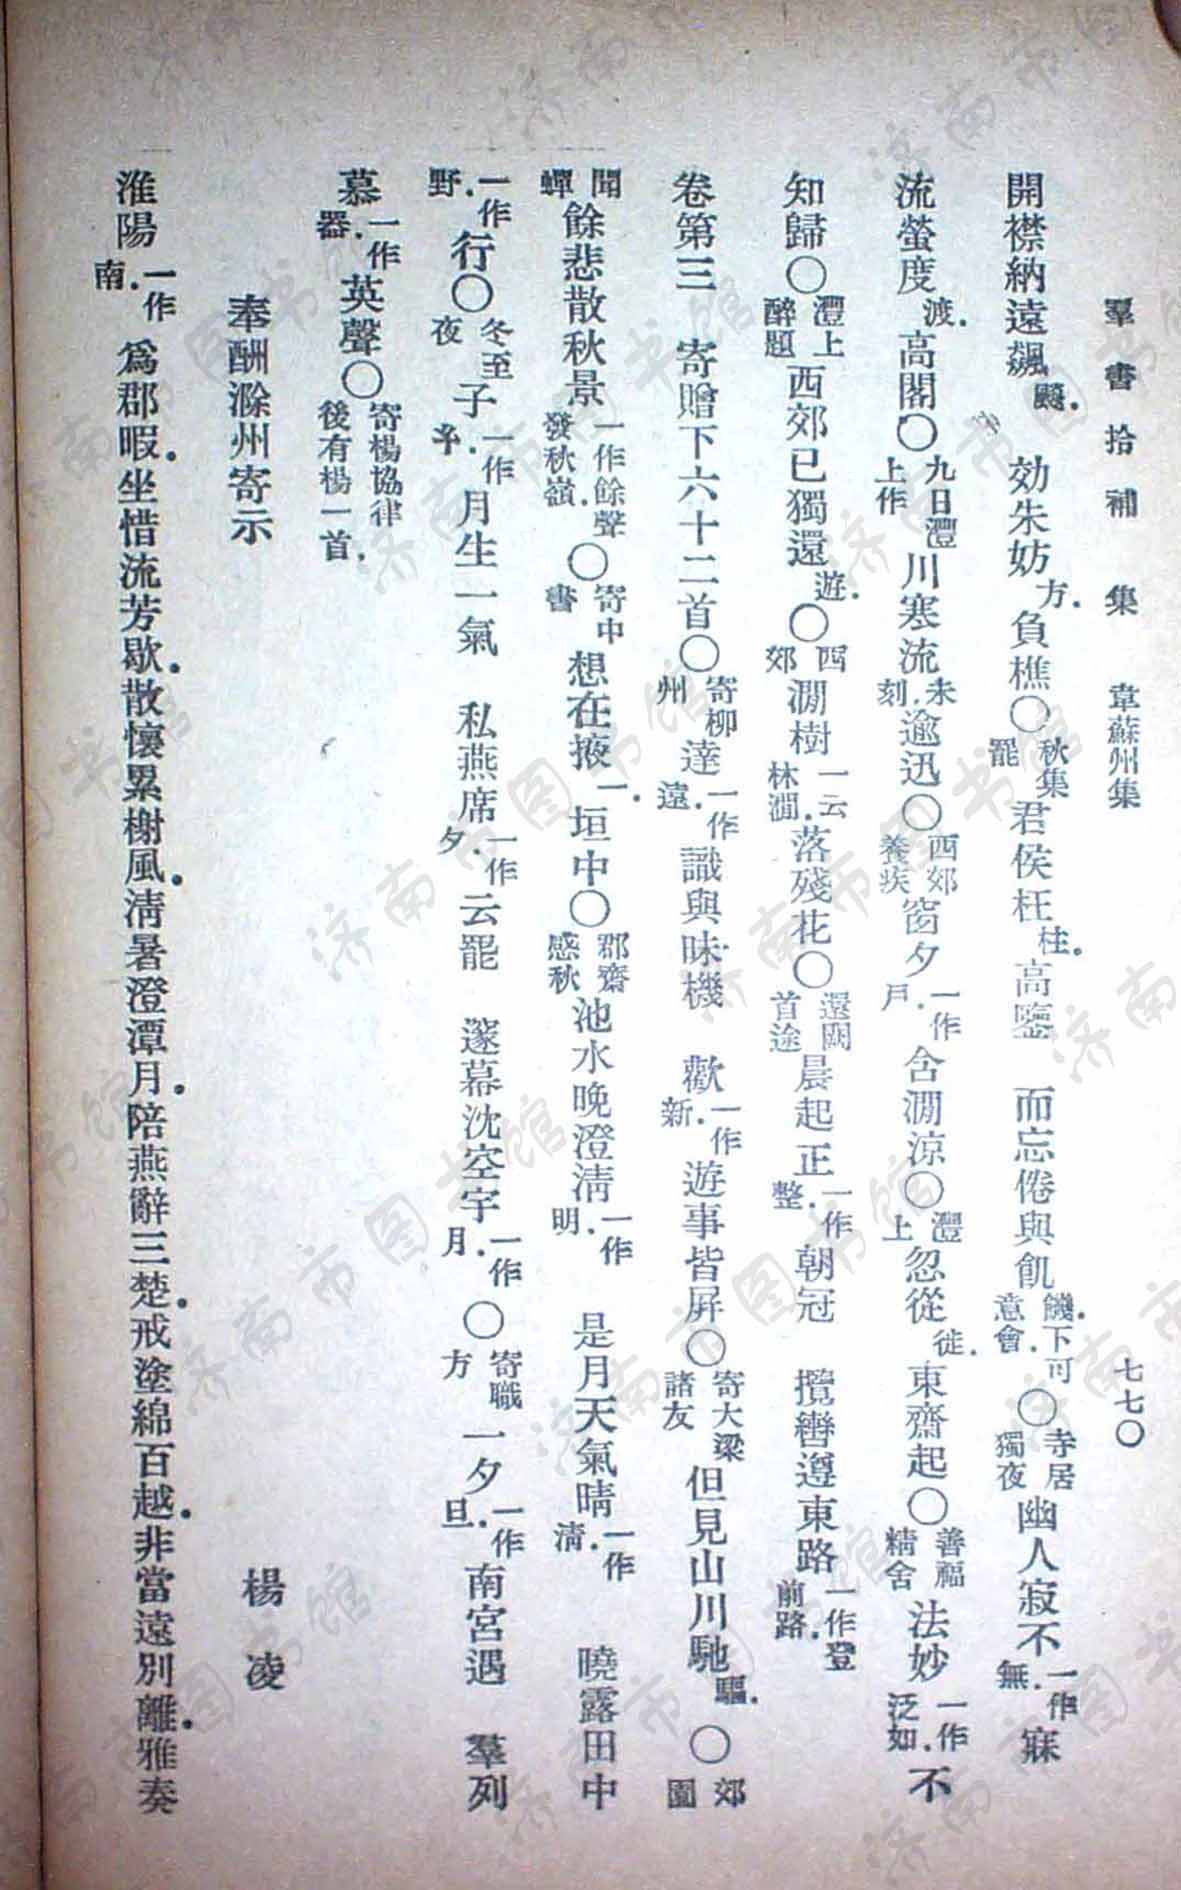 羣書拾補　集　韋蘇州集　七七〇
開襟納遠飆颸．　効朱妨方．負樵〇秋集罷君侯枉柱．高鑒　而忘倦與飢饑．下可意會．〇寺居獨夜幽人寂不一作無．寐
流螢度渡．高閣〇九日灃上作川寒流未刻．逾迅〇西郊養疾窗夕一作戶．含澗涼〇灃上忽從徒．東齋起〇善福精舍法妙一作泛如．不
知歸〇灃上醉題西郊已獨還遊．〇西郊澗樹一云林澗．落殘花〇還闕首途晨起正一作整．朝冠　攬轡遵東路一作登前路．
卷第三　寄贈下六十二首〇寄柳州達一作遠．識與昧機　歡一作新．遊事皆屏〇寄大梁諸友但見山川馳驅．〇郊園
聞蟬餘悲散秋景一作餘聲發秋嶺．〇寄中書想在掖一．垣中〇郡齋感秋池水晚澄清一作明．　是月天氣晴一作清．　曉露田中
一作野．行〇冬至夜子一作半．月生一氣　私燕席一作夕．云罷　邃幕沈空宇一作月．〇寄職方一夕一作旦．南宮遇　羣列
慕一作器．英聲〇寄楊協律後有楊一首．
奉酬滁州寄示　楊淩
淮陽一作南．爲郡暇．坐惜流芳歇．散懷累榭風．清暑澄潭月．陪燕辭三楚．戒塗綿百越．非當遠別離．雅奏
济南市图书馆